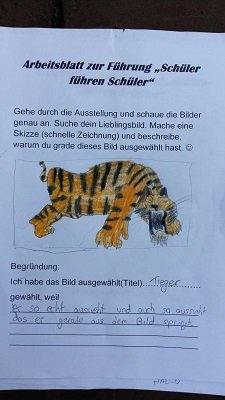 Arbeitsblatt zur Führung „Schüler
führen Schüler"
Gehe durch die Ausstellung und schaue die Bilder
genau an. Suche dein Lieblingsbild. Mache eine
Skizze (schnelle Zeichnung) und beschreibe,
warum du grade dieses Bild ausgewählt hast. ☺
Begründung:
Ich habe das Bild ausgewählt(Titel)..Tieger......
gewählt, weil
es so echt aussieht und auch so aussieht
das er gerade aus dem Bild springt